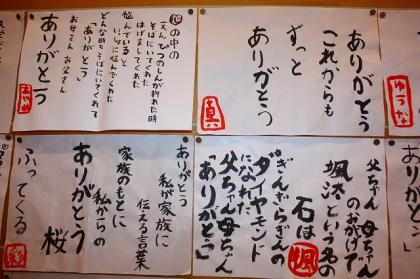 心の中の
「えんぴつのしんが折れた時
そばにいてくれた
はげましてくれた
悩んでいると
いっしょに悩んでくれた
どんな時もそばにいてくれて
「ありがとう」
お母さん お父さん
ありがとう
ありがとう
これからも
ずっと
ありがとう
真
ゆうか
ありがとう
私が家族に
伝える言葉
家族のもとに
私からの
ありがとう
桜
ふってくる
彩
父ちゃん 母ちゃん
のおかげで
颯汰という名の
石は
ぎんぎらぎんの
ダイヤモンド
になれた
父ちゃん母ちゃん
「ありがとう」
颯